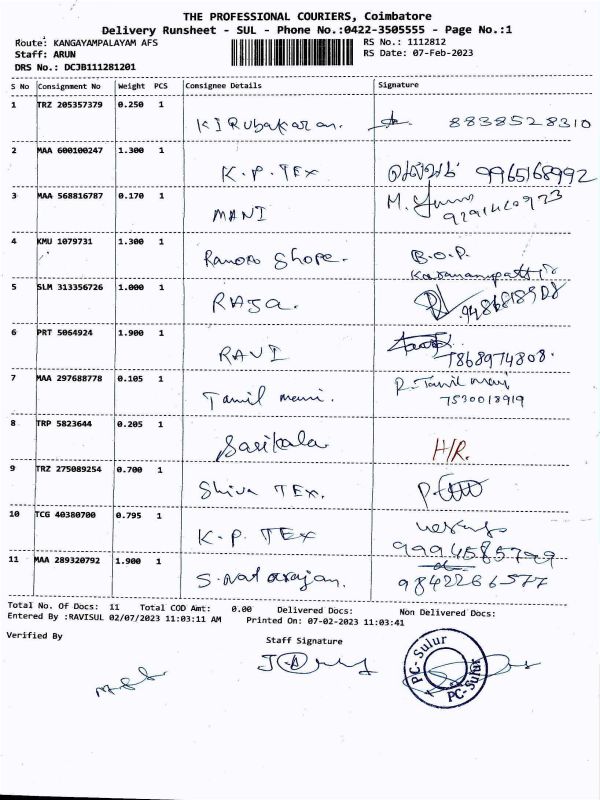 THE PROFESSIONAL COURIERS, Coimbatore
Delivery Runsheet - SUL - Phone No.:0422-3505555 - Page No.:1
Route: KANGAYAMPALAYAM AFS RS No.: 1112812
Staff: ARUN RS Date: 07-Feb-2023
DRS No.: DCJB111281201
S No Consignment No Weight PCS Consignee Details Signature
1 TRZ 205357379 0.250 1 K J Rubakaran. 8838528310
2 MAA 600100247 1.300 1 K.P. TEX 9965168992
3 MAA 568816787 0.170 1 MANI M.
4 KMU 1079731 1.300 1 Shope. B.O.P.
5 SLM 313356726 1.000 1 RAJA.
6 PRT 5064924 1.900 1 RAVI 7868974808.
7 MAA 297688778 0.105 1 Tamil mani. R. Tamil mani
7530018919
8 TRP 5823644 0.205 1 Sasikala H/R.
9 TRZ 275089254 0.700 1 Shiva TEX.
10 TCG 40380700 0.795 1 K.P. TEX
9994585799
11 MAA 289320792 1.900 1 S. Natarajan. 9842266577
Total No. Of Docs: 11 Total COD Amt: 0.00 Delivered Docs: Non Delivered Docs:
Entered By :RAVISUL 02/07/2023 11:03:11 AM Printed On: 07-02-2023 11:03:41
Verified By Staff Signature
PC-Sulur
PC-Sulur